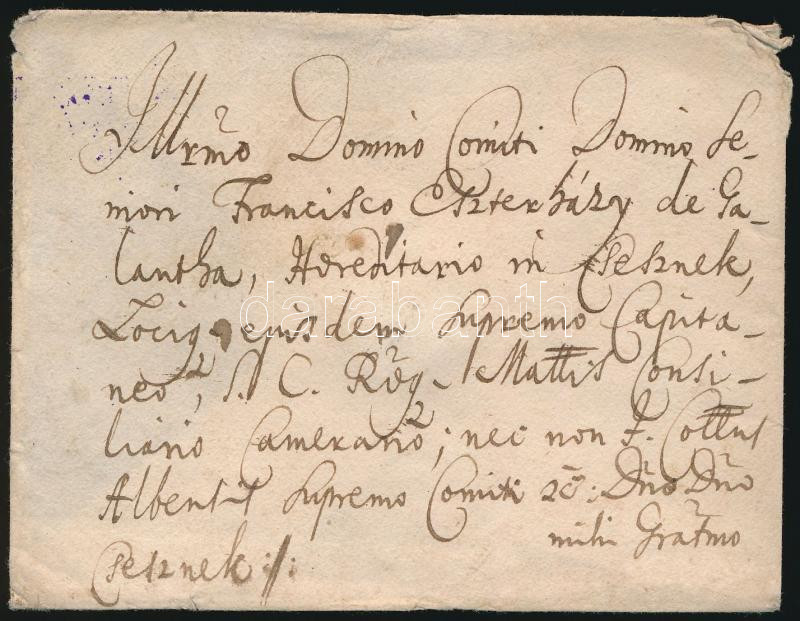 Illrmo Domino Comiti Domino Se-
niori Francisco Eszterházy de Ga-
lantha, Hereditario in Csesznek,
Lociq ejusdem Supremo Capita-
neo, S. C. Reg Mattis Consi-
liario Camerario; nec non I. Cottus
Albensis Supremo Comiti &c: Dno Dno
mihi Gratmo
Csesznek://:
darabanth